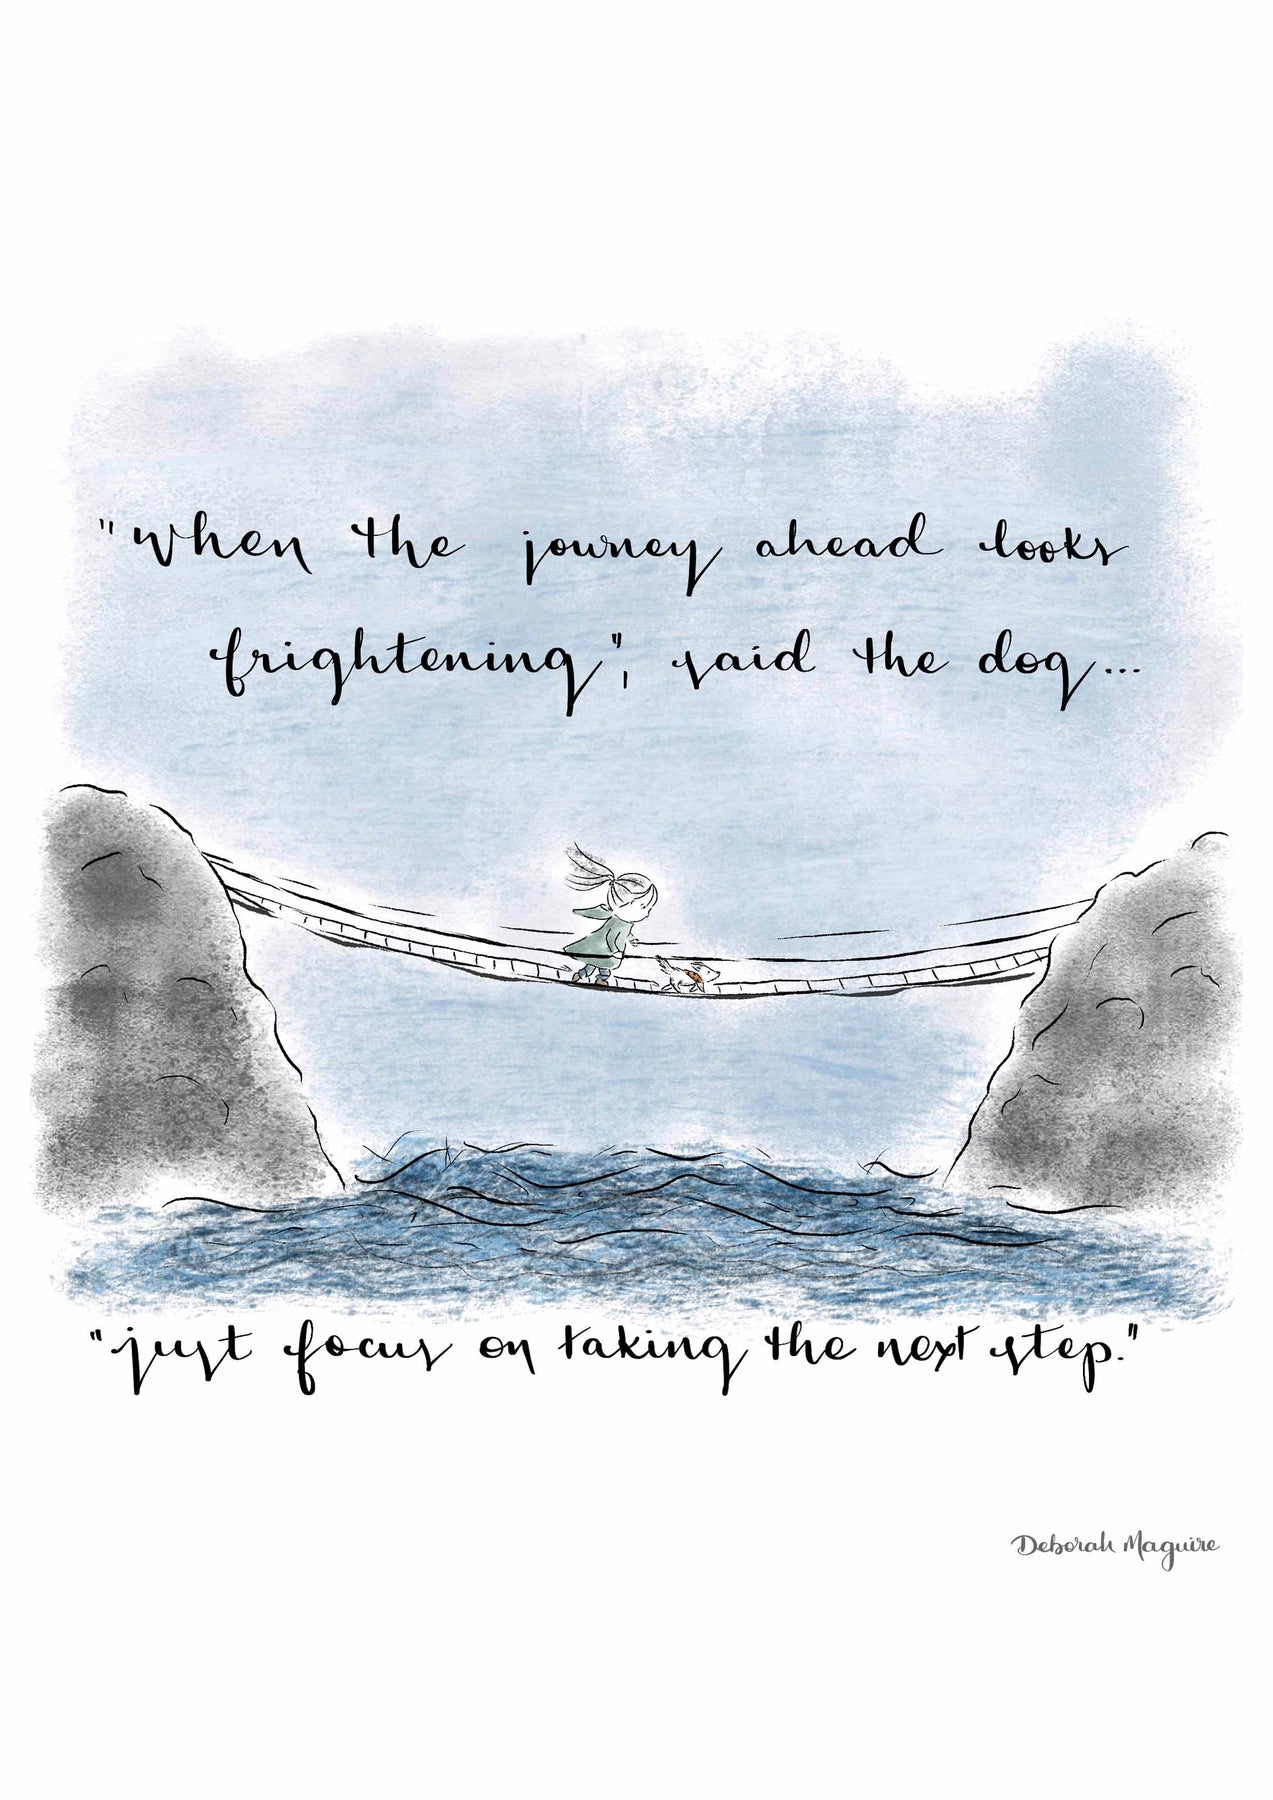 "When the journey ahead looks
frightening", said the dog...
"just focus on taking the next step."
Deborah Maguire